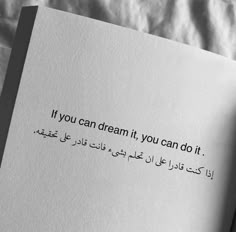 If you can dream it, you can do it .
إذا كنت قادرا على ان تحلم بشيء فانت قادر على تحقيقه.